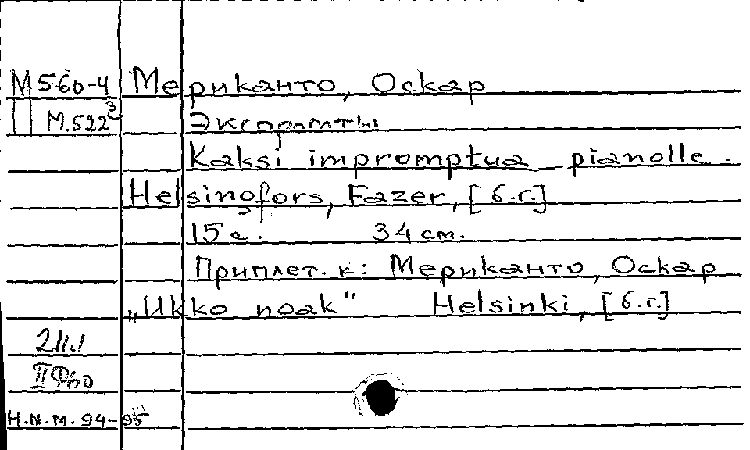 М560-4 Мериканто, Оскар
П М.522³ Экспромты
Kaksi impromptua pianolle.
Helsingfors, Fazer, [б.г.]
15 с. 34 см.
Приплет. к: Мериканто, Оскар
„Ukko noak" Helsinki, [б.г.]
H.N.M. 94-95